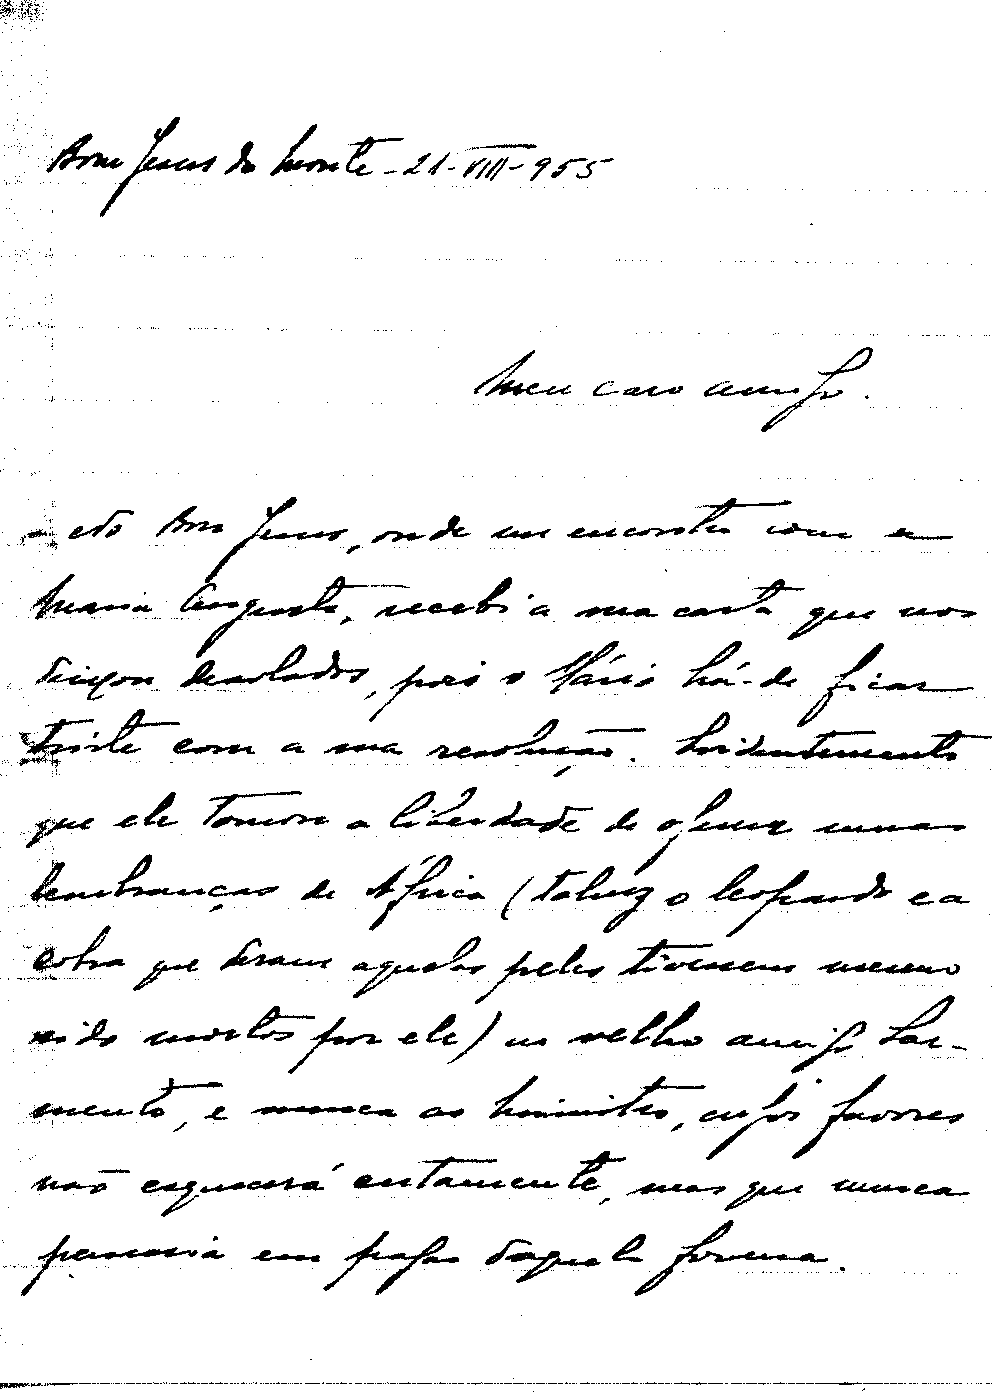 Bom Jesus do Monte - 21-VIII-955
Meu caro amigo.
Bom Jesus, onde me encontro com a
Maria Augusta, recebi a sua carta que nos
deixou desolados, pois o Mário há-de ficar
triste com a sua resolução. Evidentemente
que ele tomou a liberdade de oferecer umas
lembranças de África (talvez o leopardo e a
cobra que deram aquelas peles tivessem mesmo
sido mortos por ele) ao velho amigo Sar-
mento, e nunca ao Ministro, cujos favores
não esquecerá certamente, mas que nunca
pensaria em pagar daquela forma.